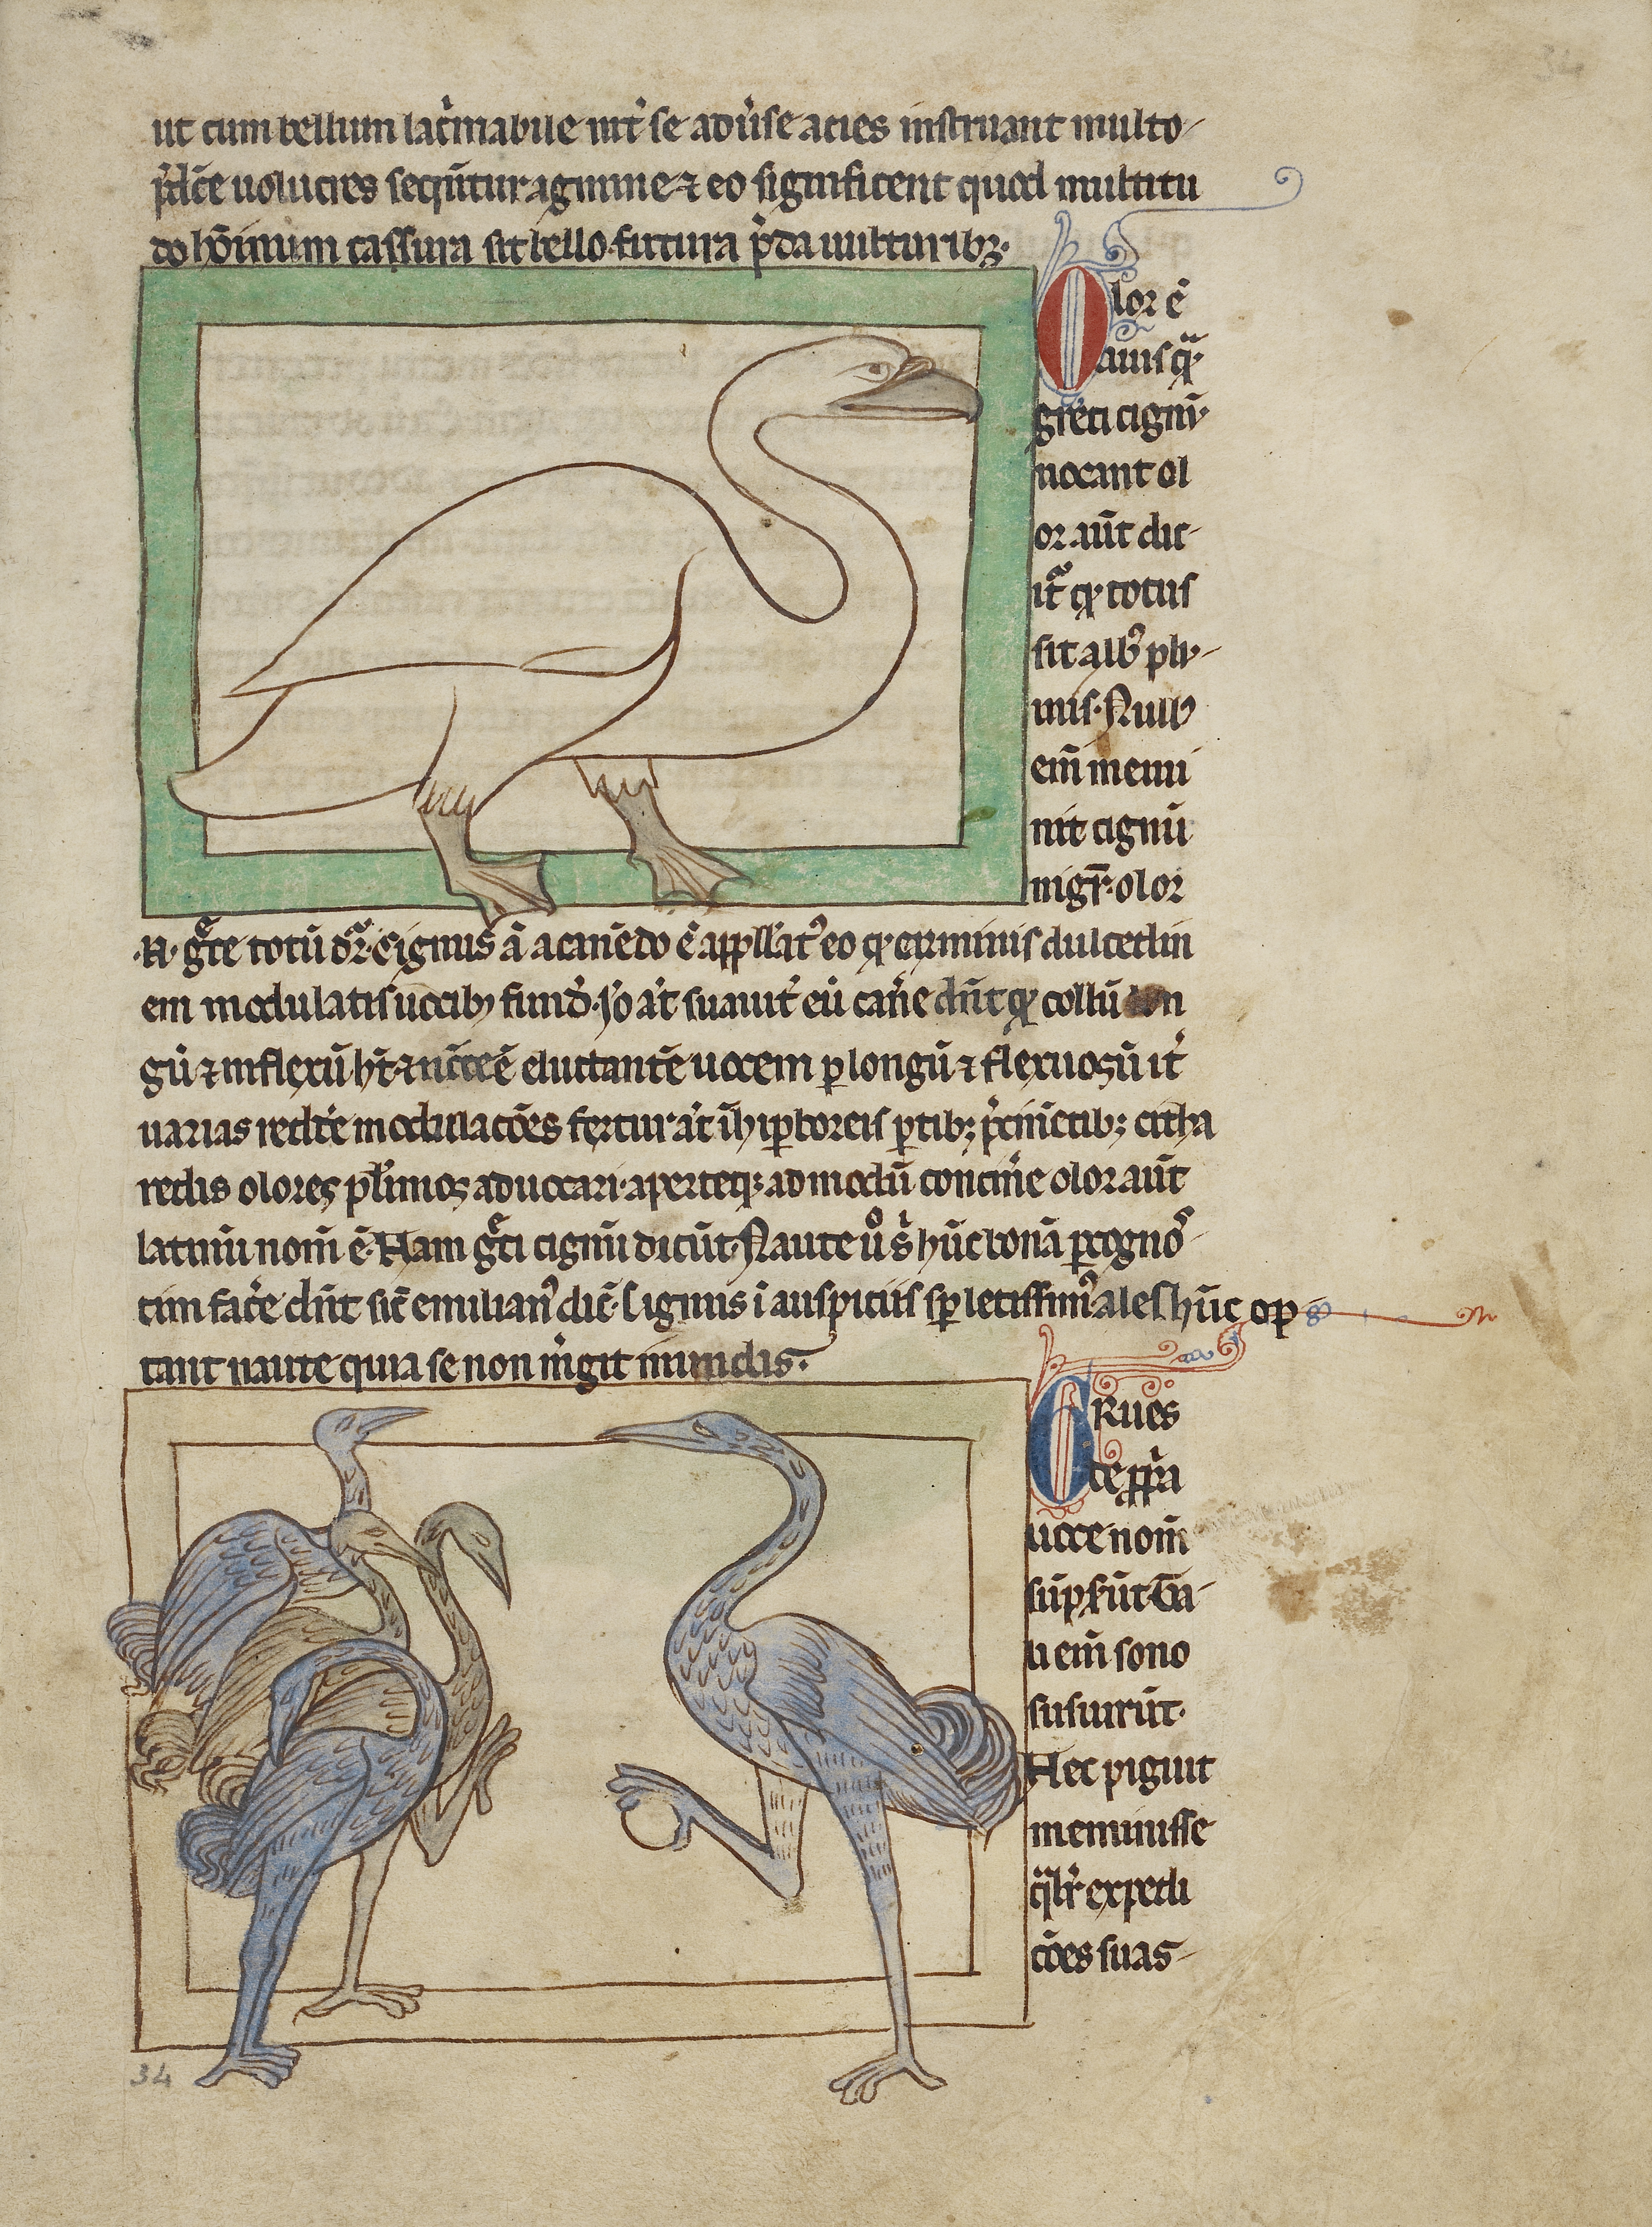 ut cum bellum lac̓mabile int̓ se adu̓se acies instruant multo
p̓dc̄e uolucres seqūtur agmine ⁊ eo significent quod multitu
do hōinum cassura sit bello. futura p̓da uulturibꝫ.
Olor ē
auis qᷓ
greci cigni
uocant ol
or. aūt dic
it᷑ ꝙ totus
sit albꝰ plu
mis. Nullꝰ
em̄ memi
nit cignū
nigr̄. olor
.N. gᷓce totū dr̄. Cignus ā a canēdo ē appll̓atꝰ eo ꝙ carminis dulcedin
em modulatis uocibꝫ fund̓. Io a̓t suauit̓ eū can̓e dn̄t ꝙ collū lon
gū ⁊ inflexū ht̄ ⁊ nc̄cē ē eluctantē uocem ꝑ longū ⁊ flexuosū it̓
uarias redd̓e modulacōes fertur a̓t ī hiꝑboreis ꝑtibꝫ p̓cinētibꝫ citha
redis olores pl̓imos aduocari. aperteqꝫ admodū concin̓e olor aūt
latinū nom̄ ē. Nam gᷓci cignū dicūt. Naute uͦ s̓ hūc bonā ꝓgnoꝰ
tim fac̓e dn̄t sic̄ emilianꝰ dic̄. Cignus ī auspiciis sꝑ letissimꝰ ales hūc op
tant naute quia se non m̓git inundis.
GRues
de ꝓpͥa
uoce nom̄
sūpserūt. Ta
li em̄ sono
susurrūt.
Hec piguit
meminisse
qᷓlr̓ expedi
cōes suas
34